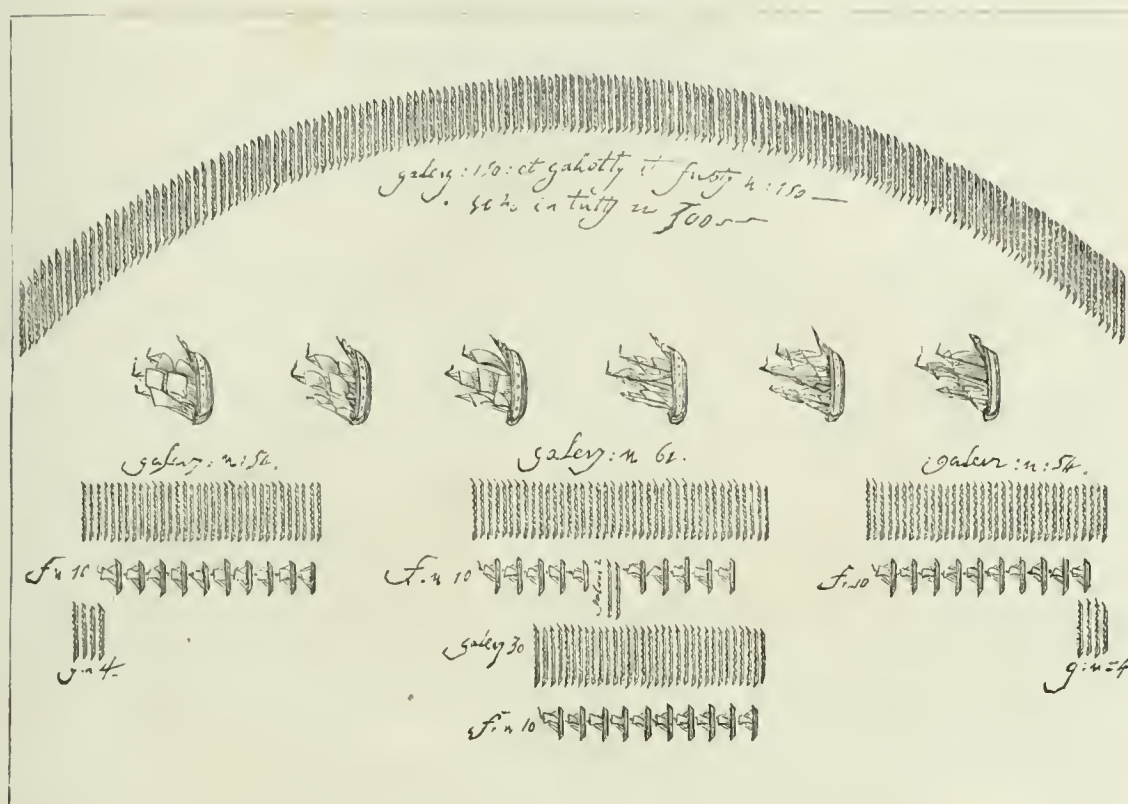 galery : 150 : et galiotty et fusty n : 150
in tutty n 300
galery : n : 54.
galery : n 61.
galery : n : 54.
f n 10
f. n 10
galere 2
f. 10
g : n 4
galery 30
g : n = 4
f. n 10